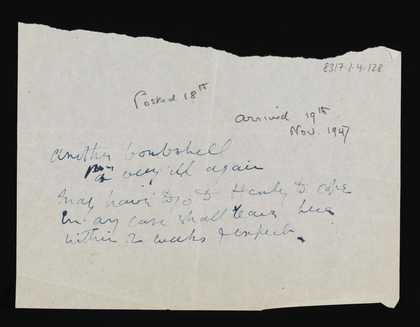 8317-1-4-128
Posted 18th
arrived 19th
Nov. 1947
another bombshell
very ill again
may have to go to Henley to
in any case shall leave here
within 2 weeks I expect.